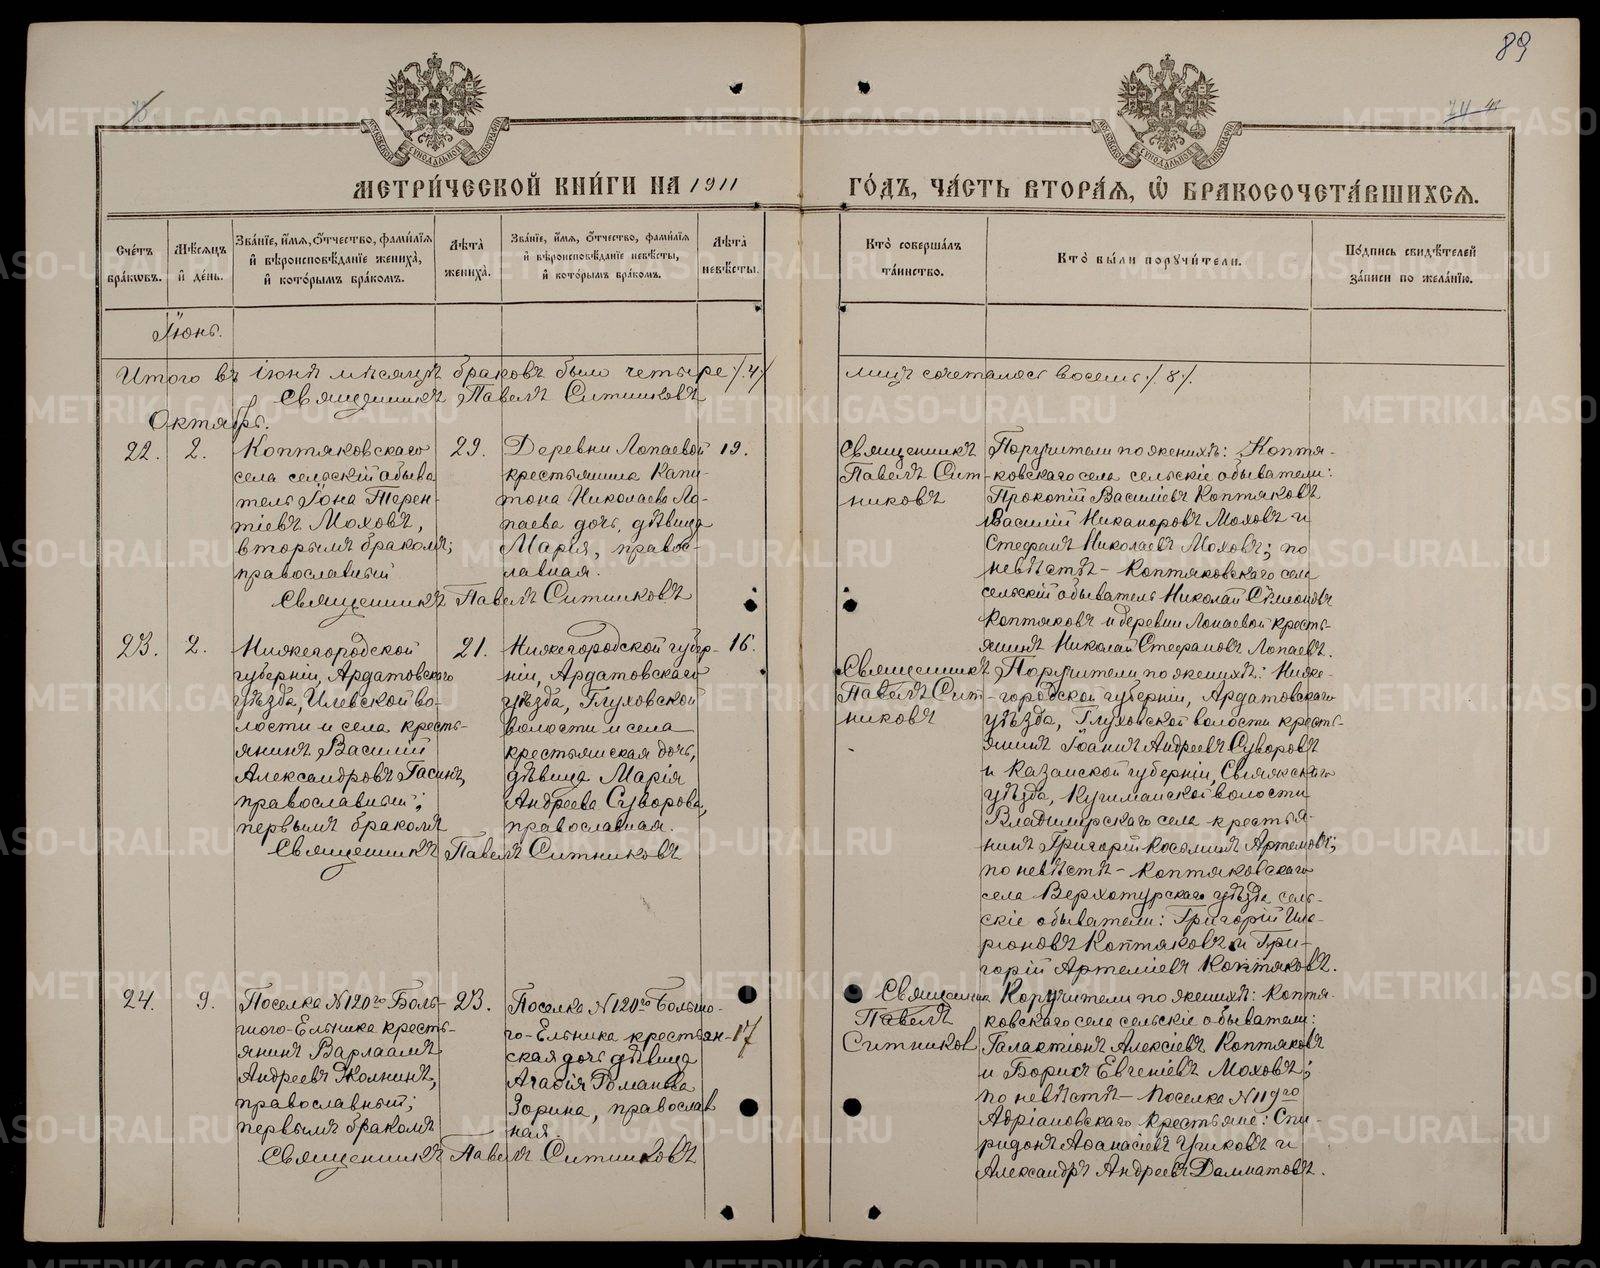 89
МЕТРИ́ЧЕСКОЙ КНИ́ГИ НА 1911
ГО́ДЪ, ЧА́СТЬ ВТОРА́Я, Ѽ БРАКОСОЧЕТА́ВШИХСЯ.
Сче́тъ бра́кѡвъ.
Мѣ́сяцъ и҆ де́нь.
Зва́нїе, и҆́мѧ, ѻ҆́тчество, фами́лїѧ и҆ вѣроисповѣ́данїе жениха̀, и҆ кото́рымъ бра́комъ.
Лѣ́та жениха̀.
Зва́нїе, и҆́мѧ, ѻ҆́тчество, фами́лїѧ и҆ вѣроисповѣ́данїе невѣ́сты, и҆ кото́рымъ бра́комъ.
Лѣ́та невѣ́сты.
Кто̀ соверша́лъ та́инство.
Кто̀ бы́ли порꙋчи́тели.
По́дпись свидѣ́телей за́писи по жела́нїю.
Іюнь.
Итого въ іюнѣ мѣсяцѣ браковъ было четыре /.4./
лицъ сочеталось восемь /.8./.
Священникъ Павелъ Ситниковъ
Октябрь.
22.
2.
Коптяковскаго
села сельскій обыва
тель Іона Терен-
тіевъ Моховъ,
вторымъ бракомъ;
православный
29.
Деревни Лопаевой
крестьянина Капи-
тона Николаева Ло-
паева дочь, дѣвица
Марія, правос-
лавная.
19.
Священникъ Павелъ Ситниковъ
Священникъ
Павелъ Сит-
никовъ
Поручители по женихѣ: Коптя-
ковскаго села сельскіе обыватели:
Прокопій Василіевъ Коптяковъ
Василій Никаноровъ Моховъ и
Стефанъ Николаевъ Моховъ; по
невѣстѣ - Коптяковскаго села
сельскій обыватель Николай Сѵмеоновъ
Коптяковъ и деревни Лопаевой кресть-
янинъ Николай Стефановъ Лопаевъ.
23.
2.
Нижегородской
губерніи, Ардатовскаго
уѣзда, Илевской во-
лости и села кресть-
янинъ Василій
Александровъ Гасинъ,
православный;
первымъ бракомъ
21.
Нижегородской губер-
ніи, Ардатовскаго
уѣзда, Глуховской
волости и села
крестьянская дочь,
дѣвица Марія
Андреева Суворова,
православная.
16.
Священникъ Павелъ Ситниковъ
Священникъ
Павелъ Сит-
никовъ
Поручители по женихѣ: Ниже-
городской губерніи, Ардатовскаго
уѣзда, Глуховской волости кресть-
янинъ Іоаннъ Андреевъ Суворовъ
и Казанской губерніи, Свіяжскаго
уѣзда, Кушманской волости
Владимірскаго села крестья-
нинъ Григорій Косьминъ Артемовъ;
по невѣстѣ - Коптяковскаго
села Верхотурскаго уѣзда сель-
скіе обыватели: Григорій Ила-
ріоновъ Коптяковъ и Гри-
горій Артеміевъ Коптяковъ.
24.
9.
Поселка №120го Боль-
шого-Ельника кресть-
янинъ Варлаамъ
Андреевъ Жолнинъ,
православный;
первымъ бракомъ
23.
Поселка №120го Большо-
го-Ельника крестьян-
ская дочь дѣвица
Агафія Романова
Зорина, православ
ная
17
Священникъ Павелъ Ситниковъ
Священник
Павелъ
Ситников
Поручители по женихѣ: Коптя-
ковскаго села сельскіе обыватели:
Галактіонъ Алексіевъ Коптяковъ
и Борисъ Евгеніевъ Моховъ;
по невѣстѣ - Поселка №119го
Адріановскаго крестьяне: Спи-
ридонъ Аѳанасіевъ Ушковъ и
Александръ Андреевъ Далматовъ.
METRIKI.GASO-URAL.RU